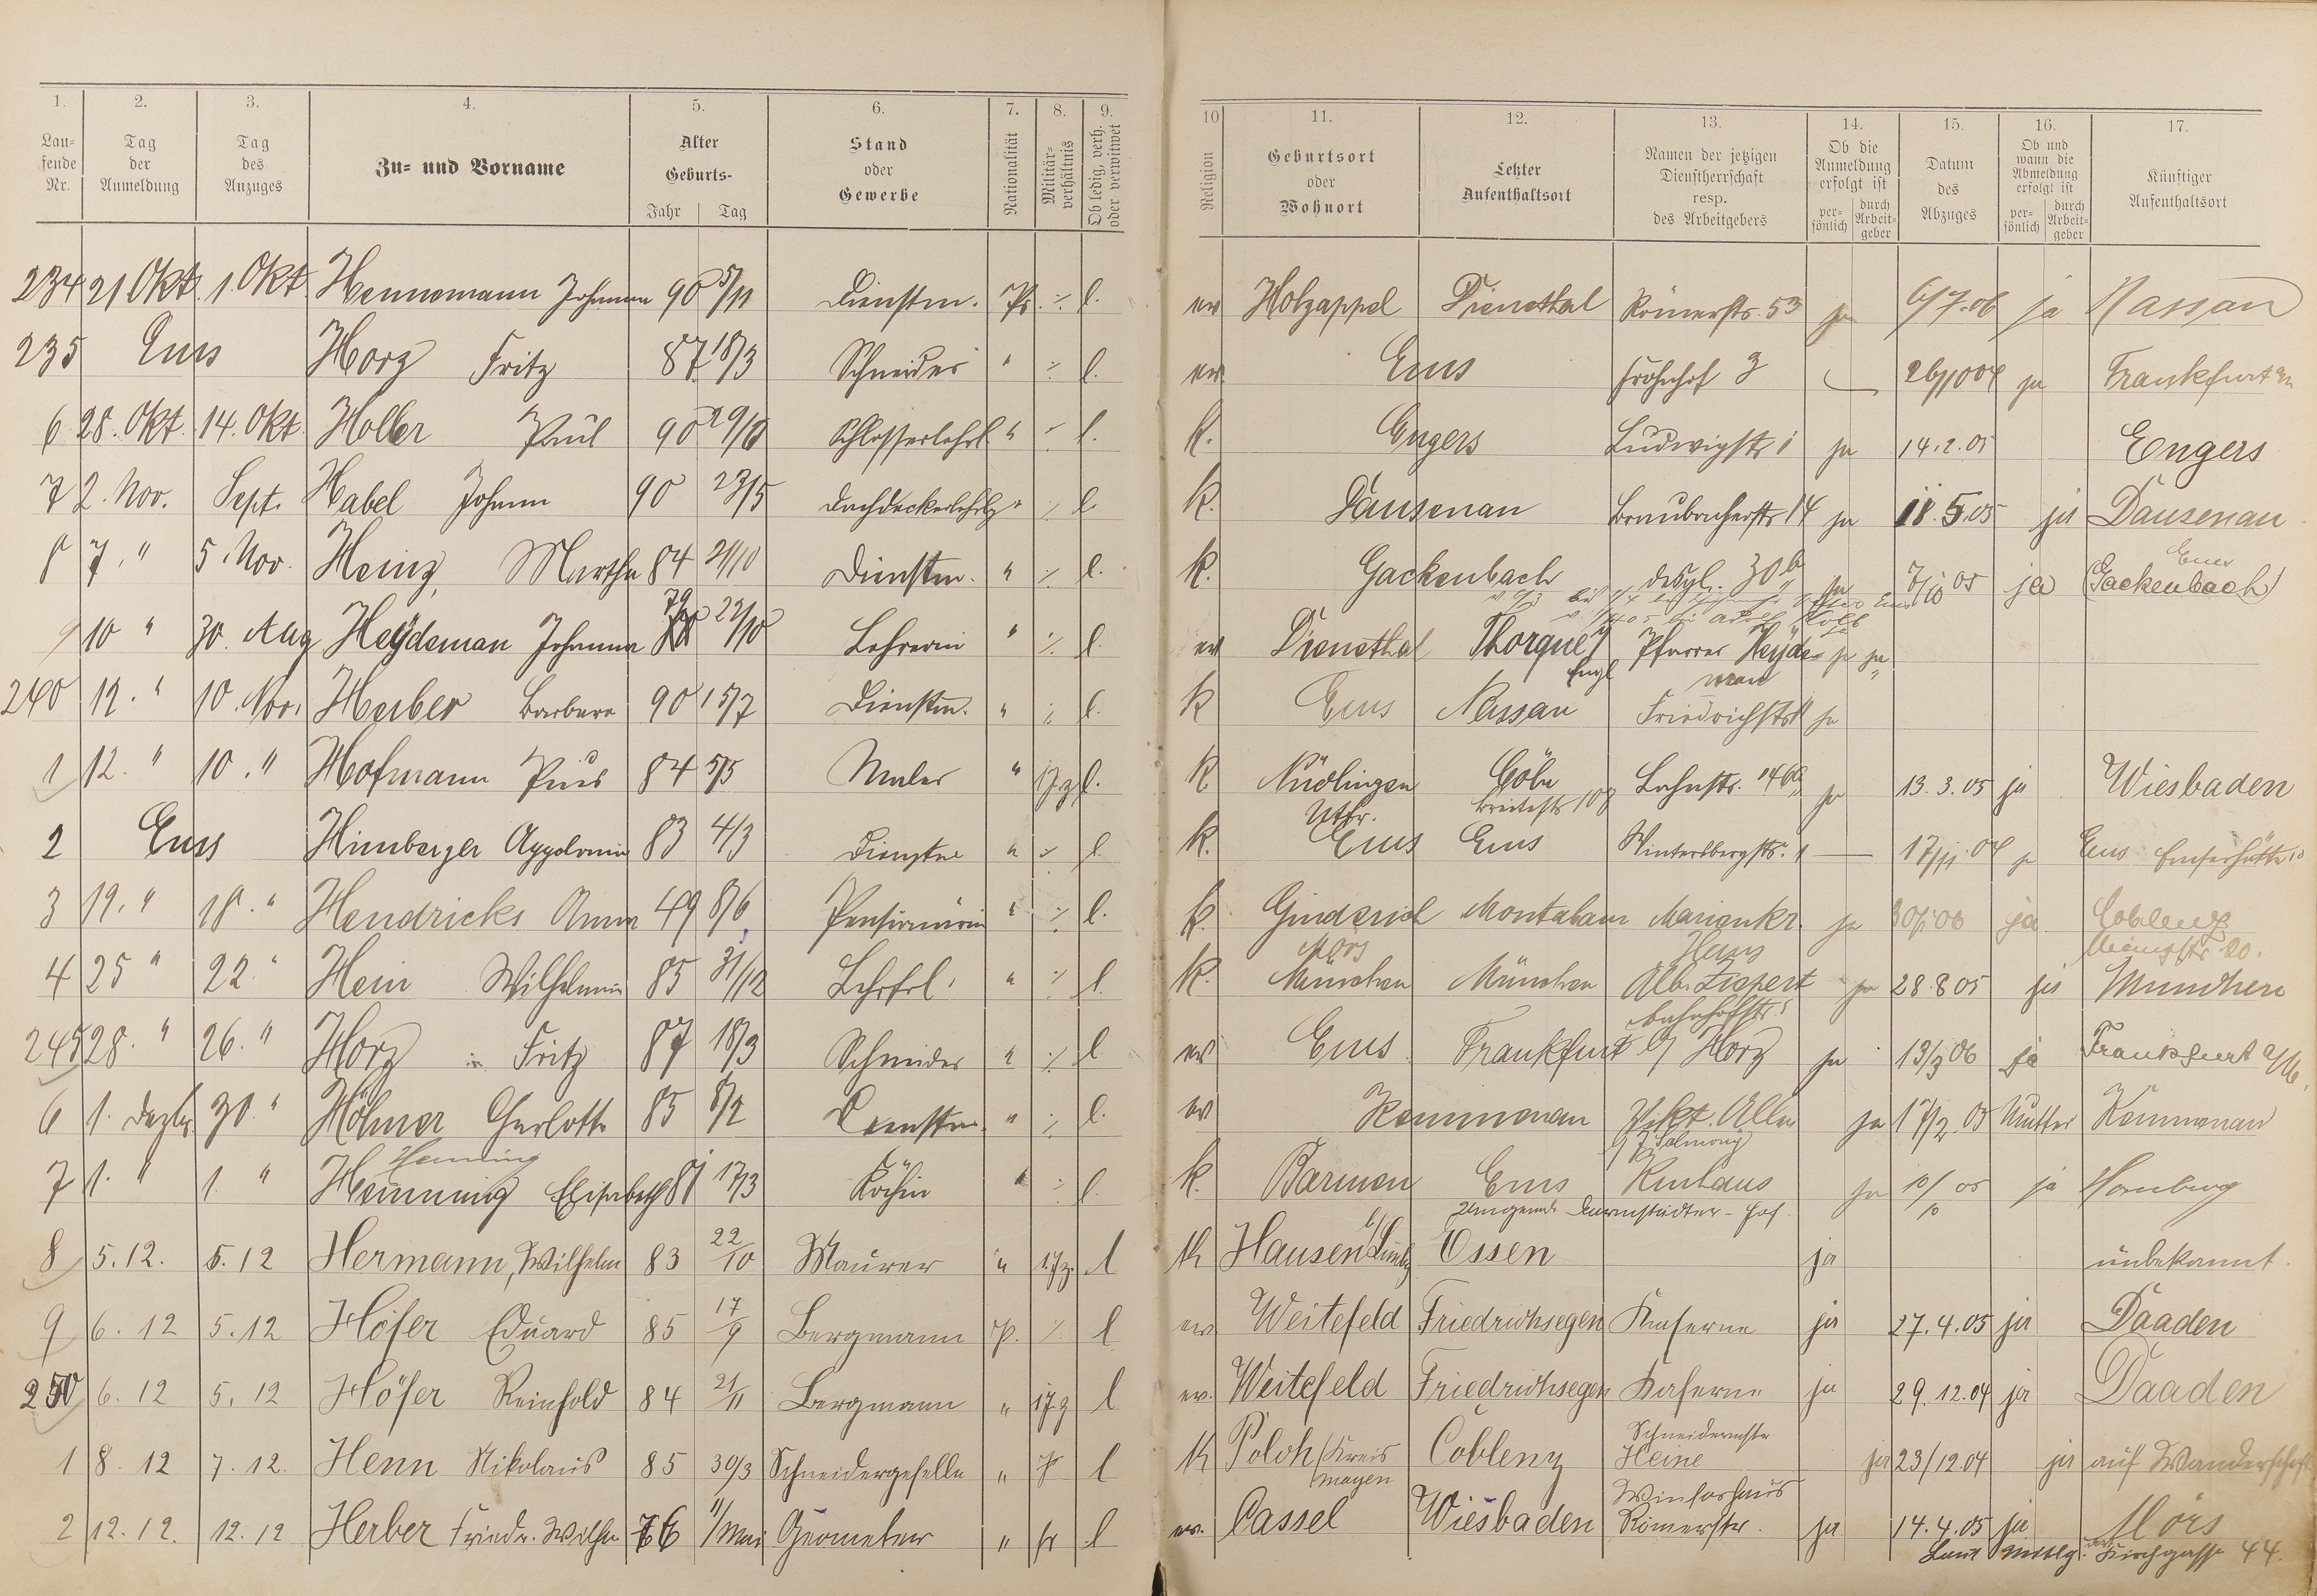 1. 2. 3. 4. 5. 6. 7. 8. 9. 10 11. 12. 13. 14. 15. 16. 17.
Lau-fende Nr. Tag der Anmeldung Tag des Anzuges Zu- und Vorname Alter Geburts- Jahr Tag Stand oder Gewerbe Nationalität Militär-verhältnis Ob ledig, verh. oder verwitwet Religion Geburtsort oder Wohnort Letzter Aufenthaltsort Namen der jetzigen Dienstherrschaft resp. des Arbeitgebers Ob die Anmeldung erfolgt ist per-sönlich durch Arbeit-geber Datum des Abzuges Ob und wann die Abmeldung erfolgt ist per-sönlich durch Arbeit-geber Künftiger Aufenthaltsort
234 21 Okt. 1. Okt. Hennemann Johanna 90 5/11 Dienstm. Pr. ·/· l. ev Holzappel Dienethal Römerstr. 53 ja 6/7.06 ja Nassau
235 Ems Horz Fritz 87 18/3 Schneider " ·/· l. ev. Ems Frohnhof 3 26/10 04 ja Frankfurt
6 28. Okt. 14. Okt. Holler Paul 90 29/8 Schlosserlehrl. " ·/· l. k. Engers Ludwigstr 1 ja 14.2.05 Engers
7 2. Nov. Sept. Habel Johann 90 23/5 Dachdeckerlehrlg " ·/· l. k. Dausenau Braubacherstr 14 ja 18.5.05 ja Dausenau
8 7. " 5. Nov. Heinz, Martha 84 21/10 Dienstm. " ·/· l. k. Gackenbach desgl. 30 b ja 7/10 05 ja Ems (Gackenbach)
9 10 " 30. Aug Heydeman Johanna 79 22/10 Lehrerin " ·/· l. ev Dienethal Thorque Engl Pfarrer Heyde-man ja ja
240 12. " 10. Nov. Herber Barbara 90 15/7 Dienstm. " ·/· l. k Ems Nassau Friedrichstr ja
1 12. " 10. " Hofmann Pius 84 5/5 Maler " l. k Nüdlingen Utfr. Cöln Breitestr 108 Lahnstr. 146 ja 13.3.05 ja Wiesbaden
2 Ems Himberger Appolonia 83 4/3 " ·/· l. k. Ems Ems Wintersbergstr. 1 17/11.04 ja Ems Emserhütte 10
3 19. " 18. " Hendricks Anna 49 8/6 Pensionärin " ·/· l. k. Ginderich Mörs Montabaur Marienkr. Haus ja 30/ 06 ja Coblenz Mainzstr 20.
4 25 " 22. " Hein Wilhelmin 85 31/12 Lehrfrl. " ·/· l. k. München München Alb. Bahnhofstr ja 28.8.05 ja München
245 28. " 26. " Horz Fritz 87 18/3 Schneider " ·/· l. ev Ems Frankfurt Horz ja 13/3 06 ja Frankfurt a/M.
6 1. Dezbr 30. " Höhner Charlotte 85 8/2 Dienstm. " ·/· l. ev Kemmenau ja 17/2.05 Mutter Kemmenau
7 1. " 1. " Henning Henning Elisabeth 81 17/3 Köchin " ·/· l. k. Barmen Ems Kurhaus Darmstädter-Hof. ja 10/10 05 ja Homburg
8 5.12. 5.12 Hermann, Wilhelm 83 22/10 Maurer " l k Hausen Essen ja unbekannt.
9 6.12 5.12 Höfer Eduard 85 17/9 Bergmann p. ·/· l ev. Weitefeld Friedrichsegen Kaserne ja 27.4.05 ja Daaden
250 6.12 5.12 Höfer Reinhold 84 21/11 Bergmann " l ev. Weitefeld Friedrichsegen Kaserne ja 29.12.04 ja Daaden
1 8.12 7.12. Henn Nikolaus 85 30/3 Schneidergeselle " l k Polch (Kreis Mayen Coblenz Schneidermstr Heine ja 23/12.04 ja auf Wanderschaft
2 12.12. 12.12 Herber Friedr. Wilh. 76 11/Mai Geometer " l ev. Cassel Wiesbaden Römerstr. ja 14.4.05 ja Mörs
Laut Mittlg. Kirchgasse 44.